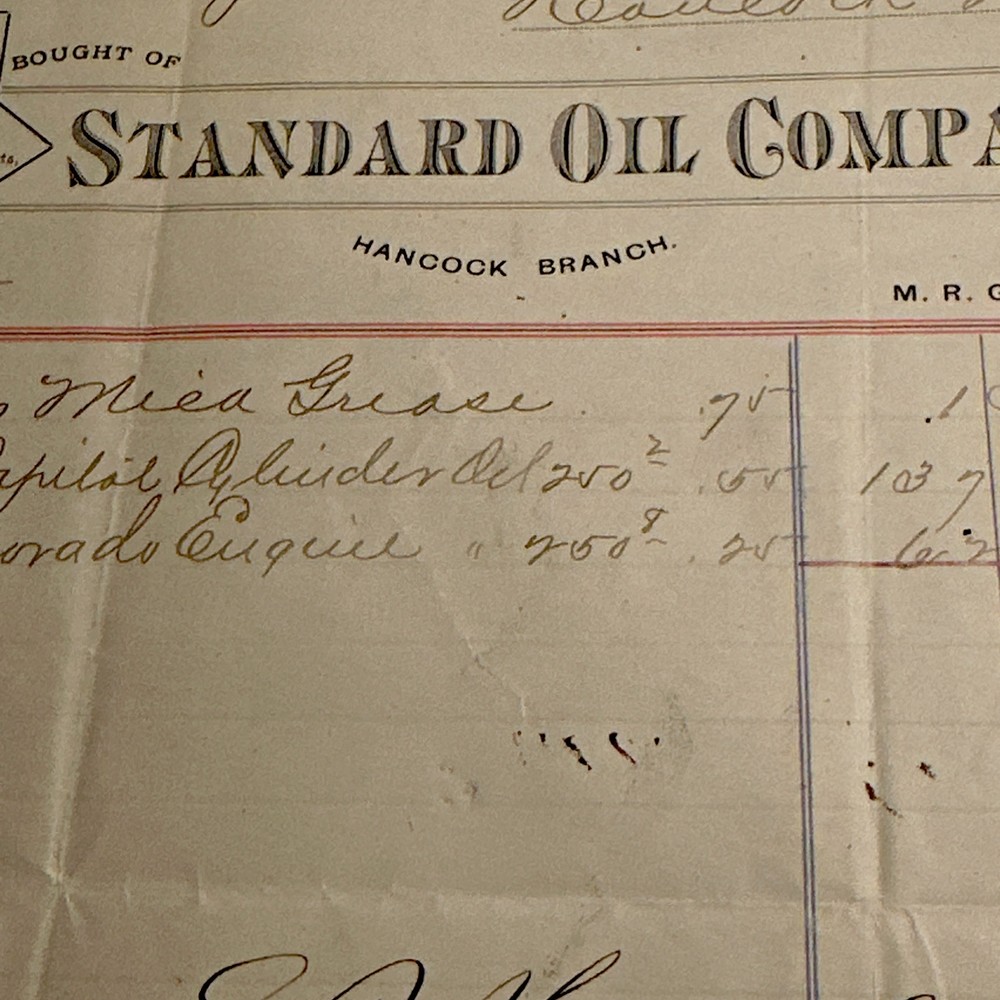 Hancock
BOUGHT OF
STANDARD OIL COMPA
HANCOCK BRANCH.
M. R. G
Mica Grease .75 .1
apitol Cylinder Oil 250² .55 137
orado Engine " 250⁸ .25 62